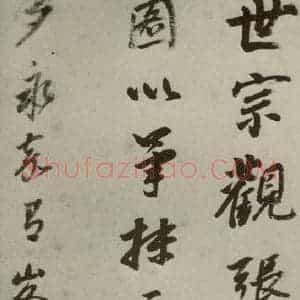 世宗觀張
圖以筆抹
永嘉
Shufaziliao.COM